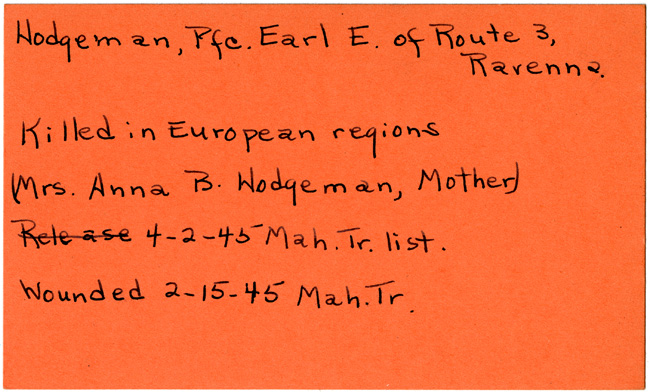 Hodgeman, Pfc. Earl E. of Route 3,
Ravenna.
Killed in European regions
(Mrs. Anna B. Hodgeman, Mother)
Release 4-2-45 Mah. Tr. list.
Wounded 2-15-45 Mah. Tr.